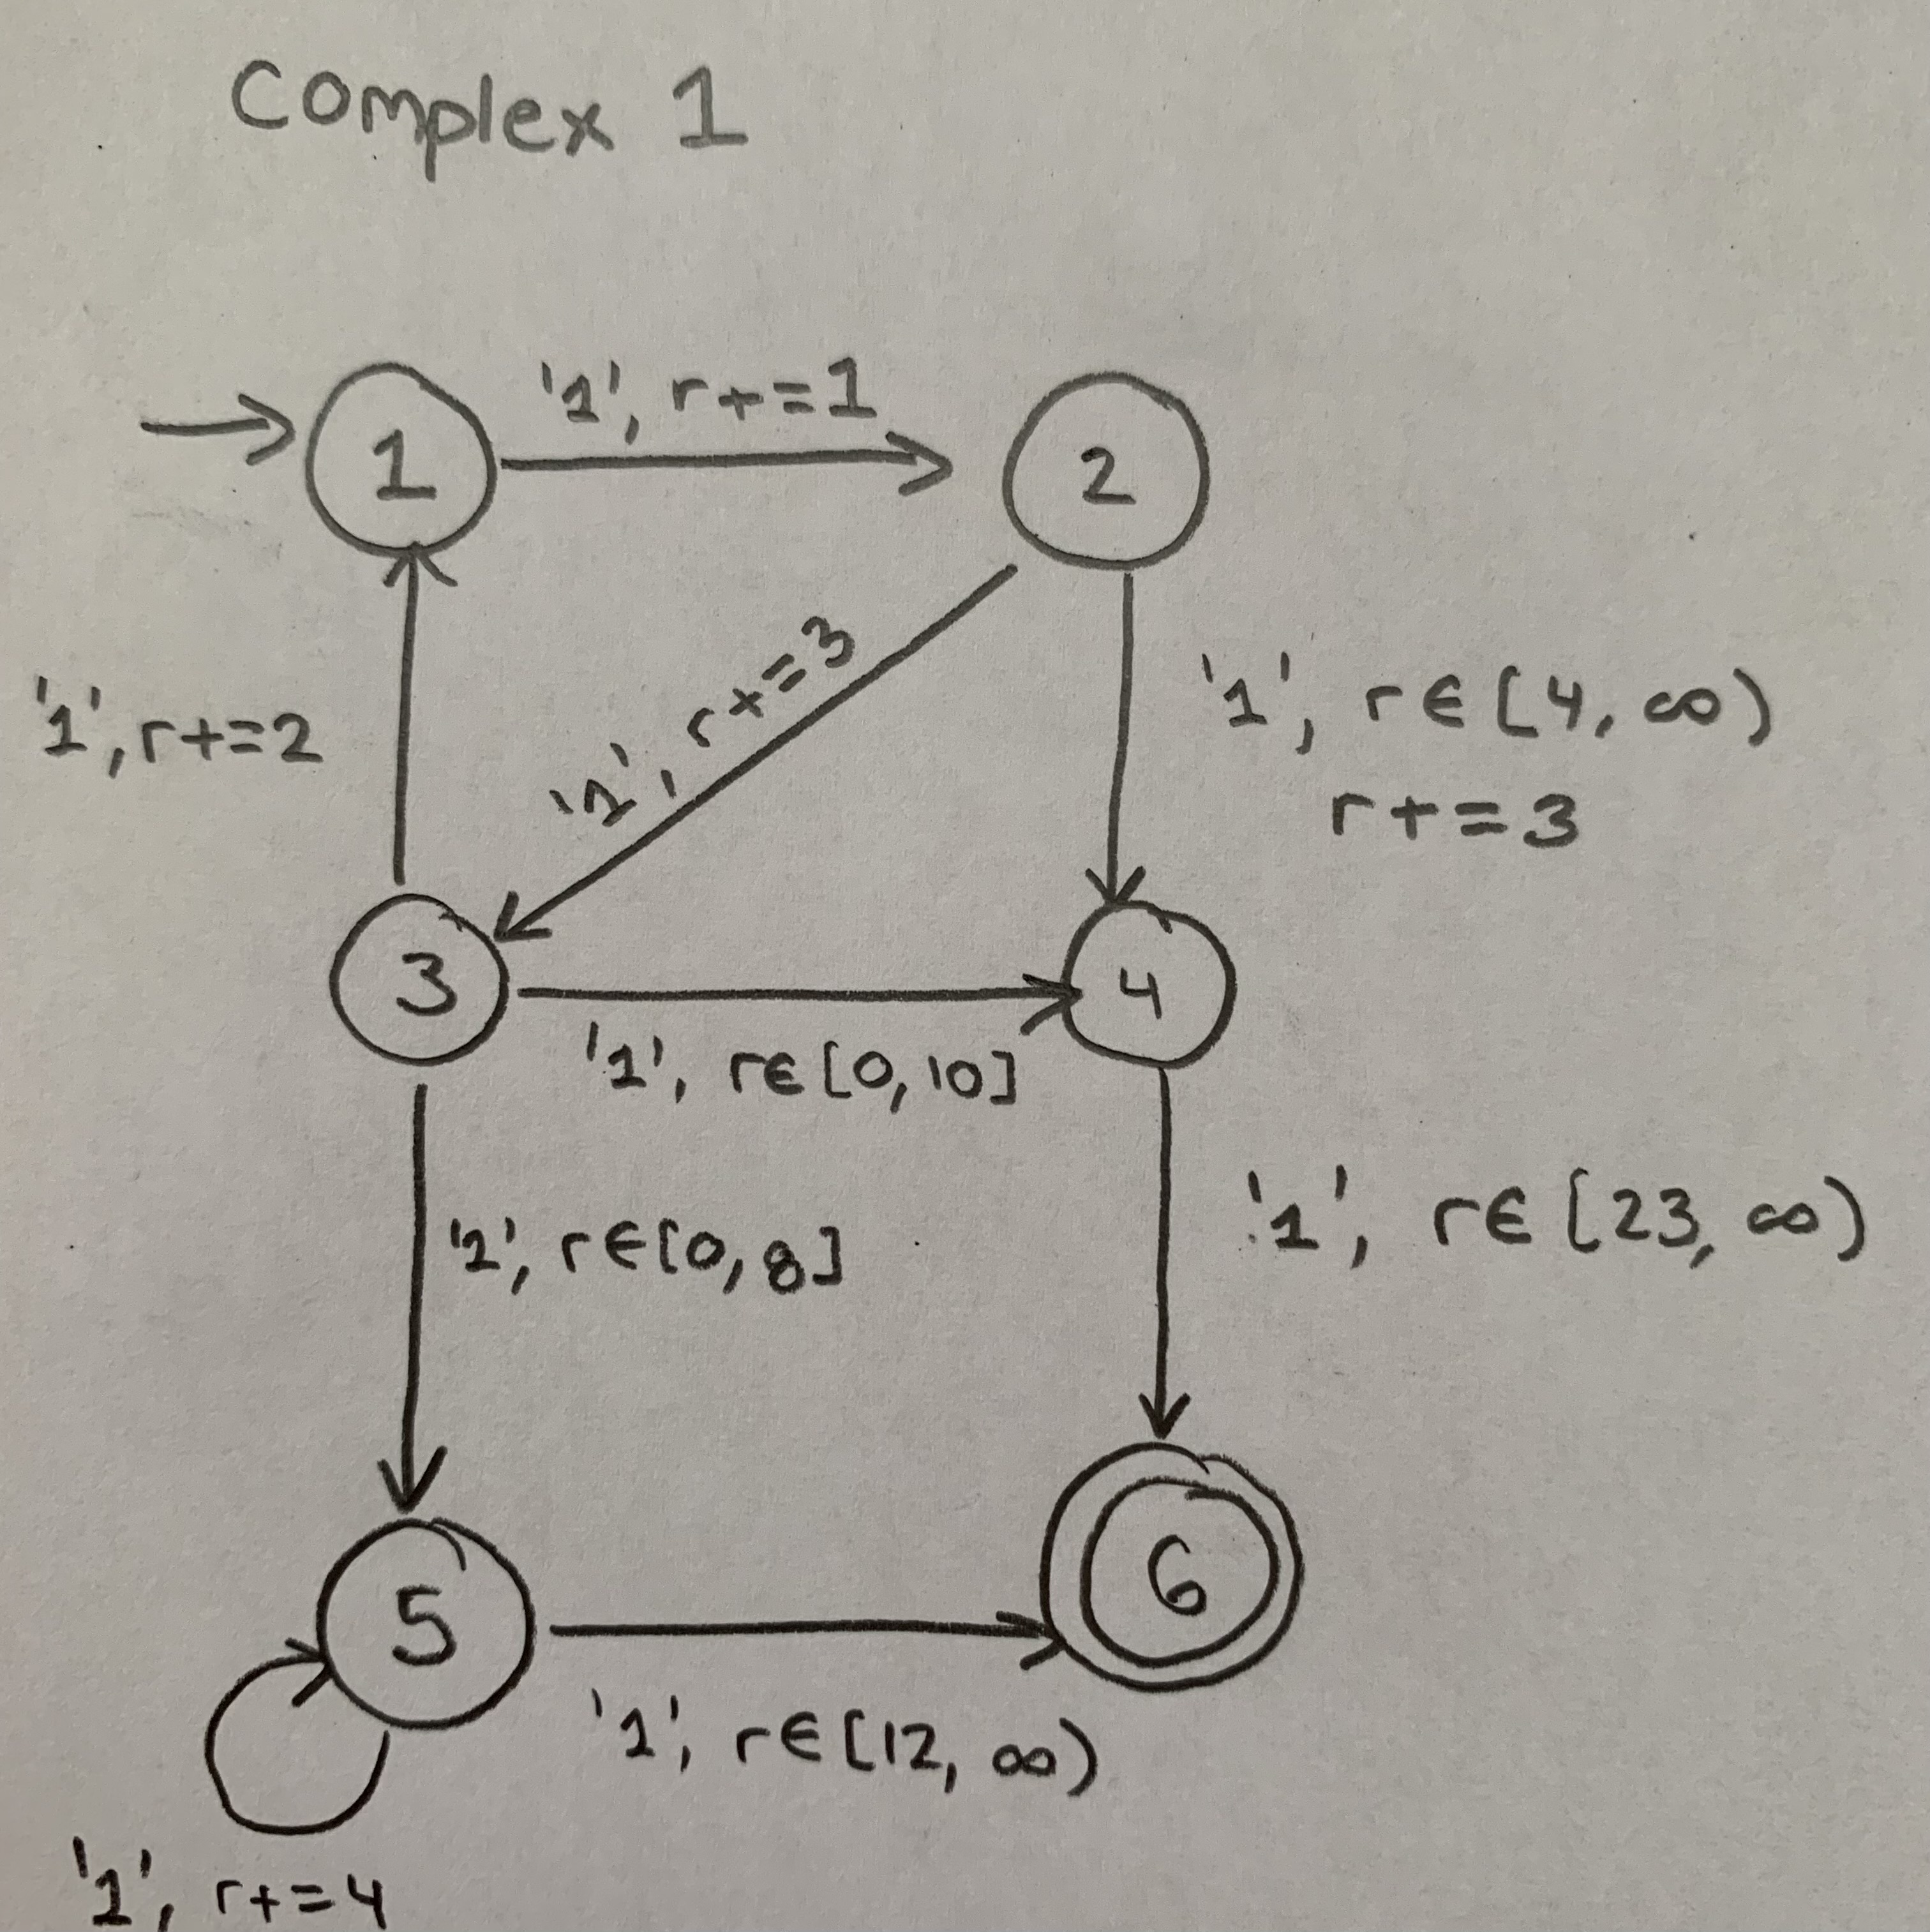 Complex 1
'1', r+=1
1
2
'1', r+=3
'1', r+=2
'1', r∈[4, ∞)
r+=3
3
4
'1', r∈[0,10]
'1', r∈[23, ∞)
'1', r∈[0,8]
5
6
'1', r∈[12, ∞)
'1', r+=4